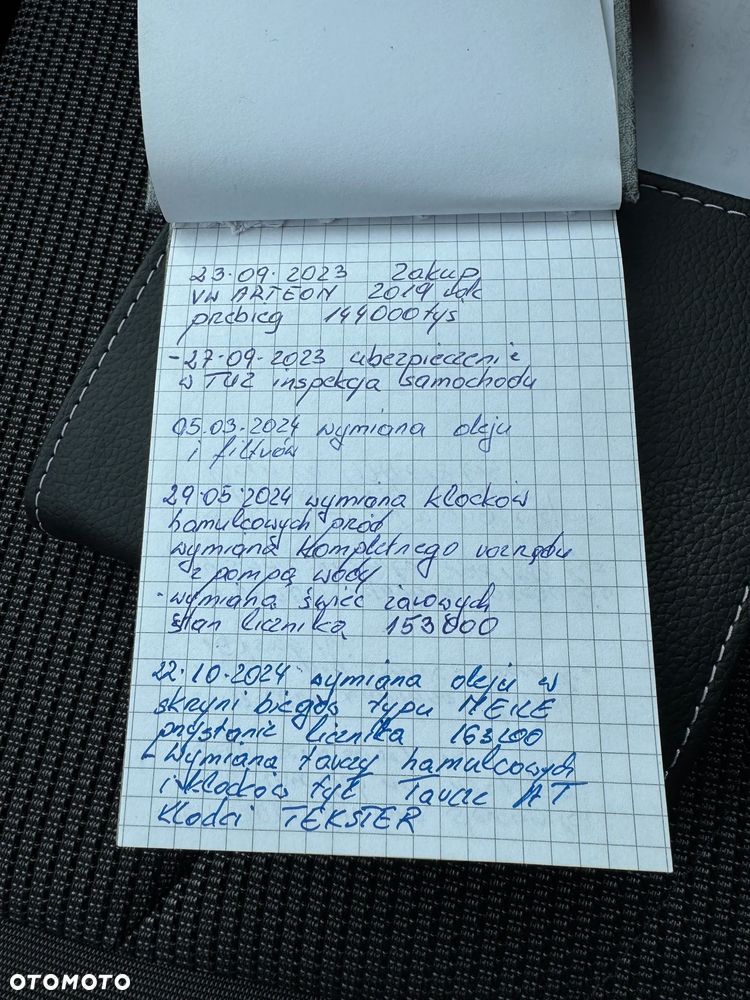 23.09.2023 Zakup
VW ARTEON 2019 rok
przbieg 144000tys
-27.09.2023 ubezpieczenie
w TUZ inspekcja samochodu
05.03.2024 wymiana oleju
i filtrów
29.05.2024 wymiana klocków
hamulcowych przód
wymiana kompletnego rozrządu
z pompą wody
-wymiana świec żarowych
stan licznika 153000
22.10.2024 wymiana oleju w
skrzyni biegów typu MEILE
przy stanie licznika 163200
- Wymiana tarczy hamulcowych
i klocków tył Tarcze AT
Klocki TEKSTER
OTOMOTO